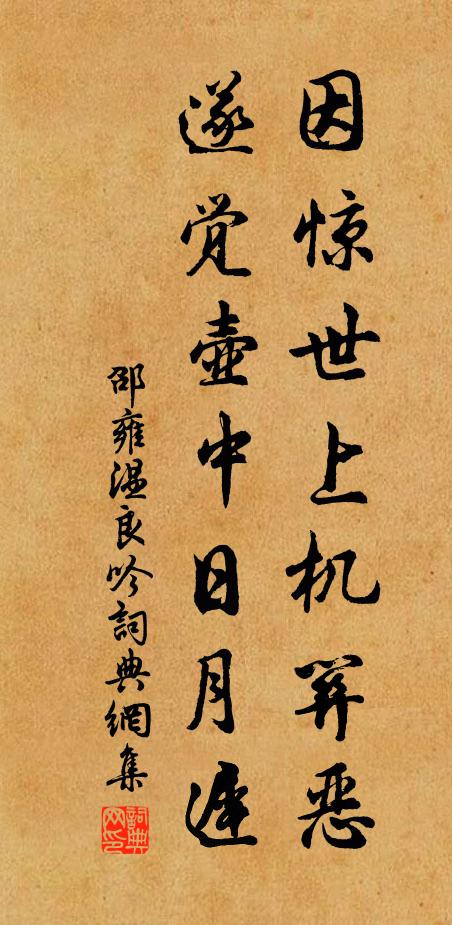 因惊世上机穽恶
遂觉壶中日月迟
邵雍温良吟词典網集
詞典网印